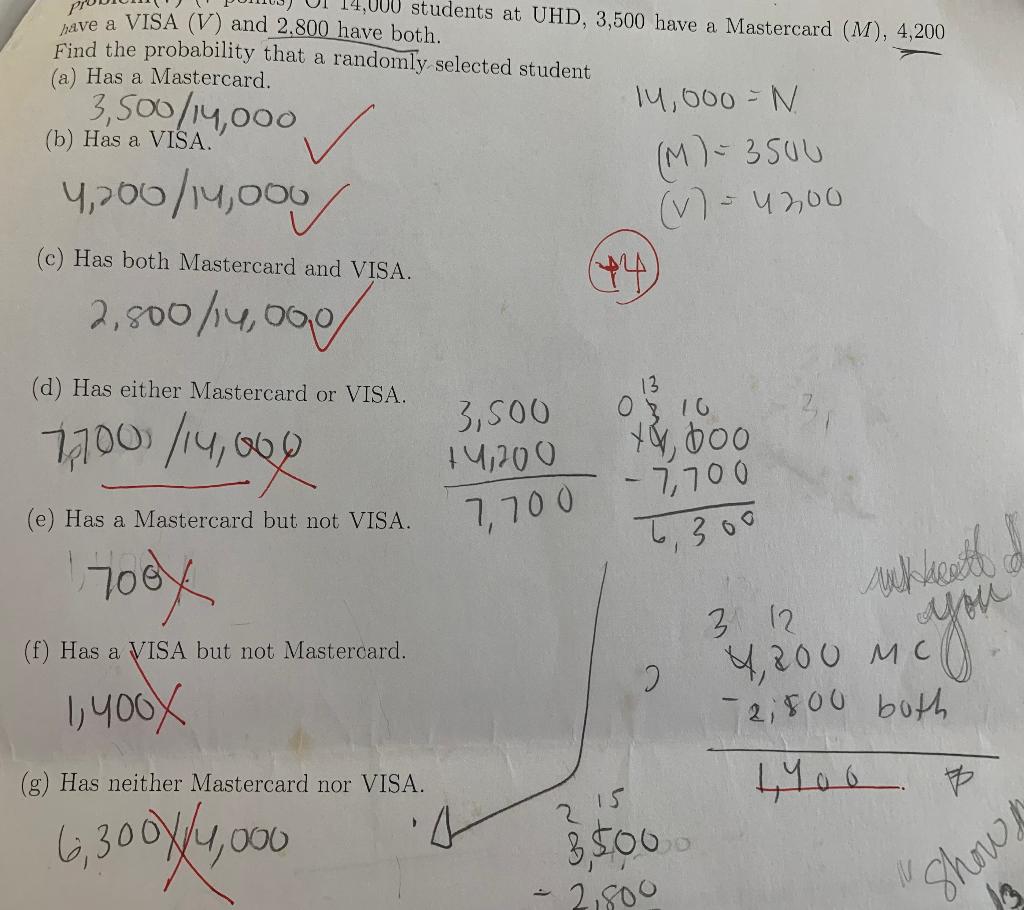 14,000 students at UHD, 3,500 have a Mastercard (M), 4,200
have a VISA (V) and 2,800 have both.
Find the probability that a randomly selected student
(a) Has a Mastercard.
3,500/14,000
14,000 = N
(b) Has a VISA.
(M) = 3500
4,200/14,000
(V) = 4200
(c) Has both Mastercard and VISA.
+4
2,800/14,000
(d) Has either Mastercard or VISA.
7,700/14,000
3,500
+4,200
7,700
13
0 3 10
14,000
- 7,700
6,300
3,
(e) Has a Mastercard but not VISA.
700
you
(f) Has a VISA but not Mastercard.
1,400
3 12
4,200 MC
- 2,800 both
1,400
(g) Has neither Mastercard nor VISA.
6,300/14,000
2 15
3,500
- 2,800
"show
13